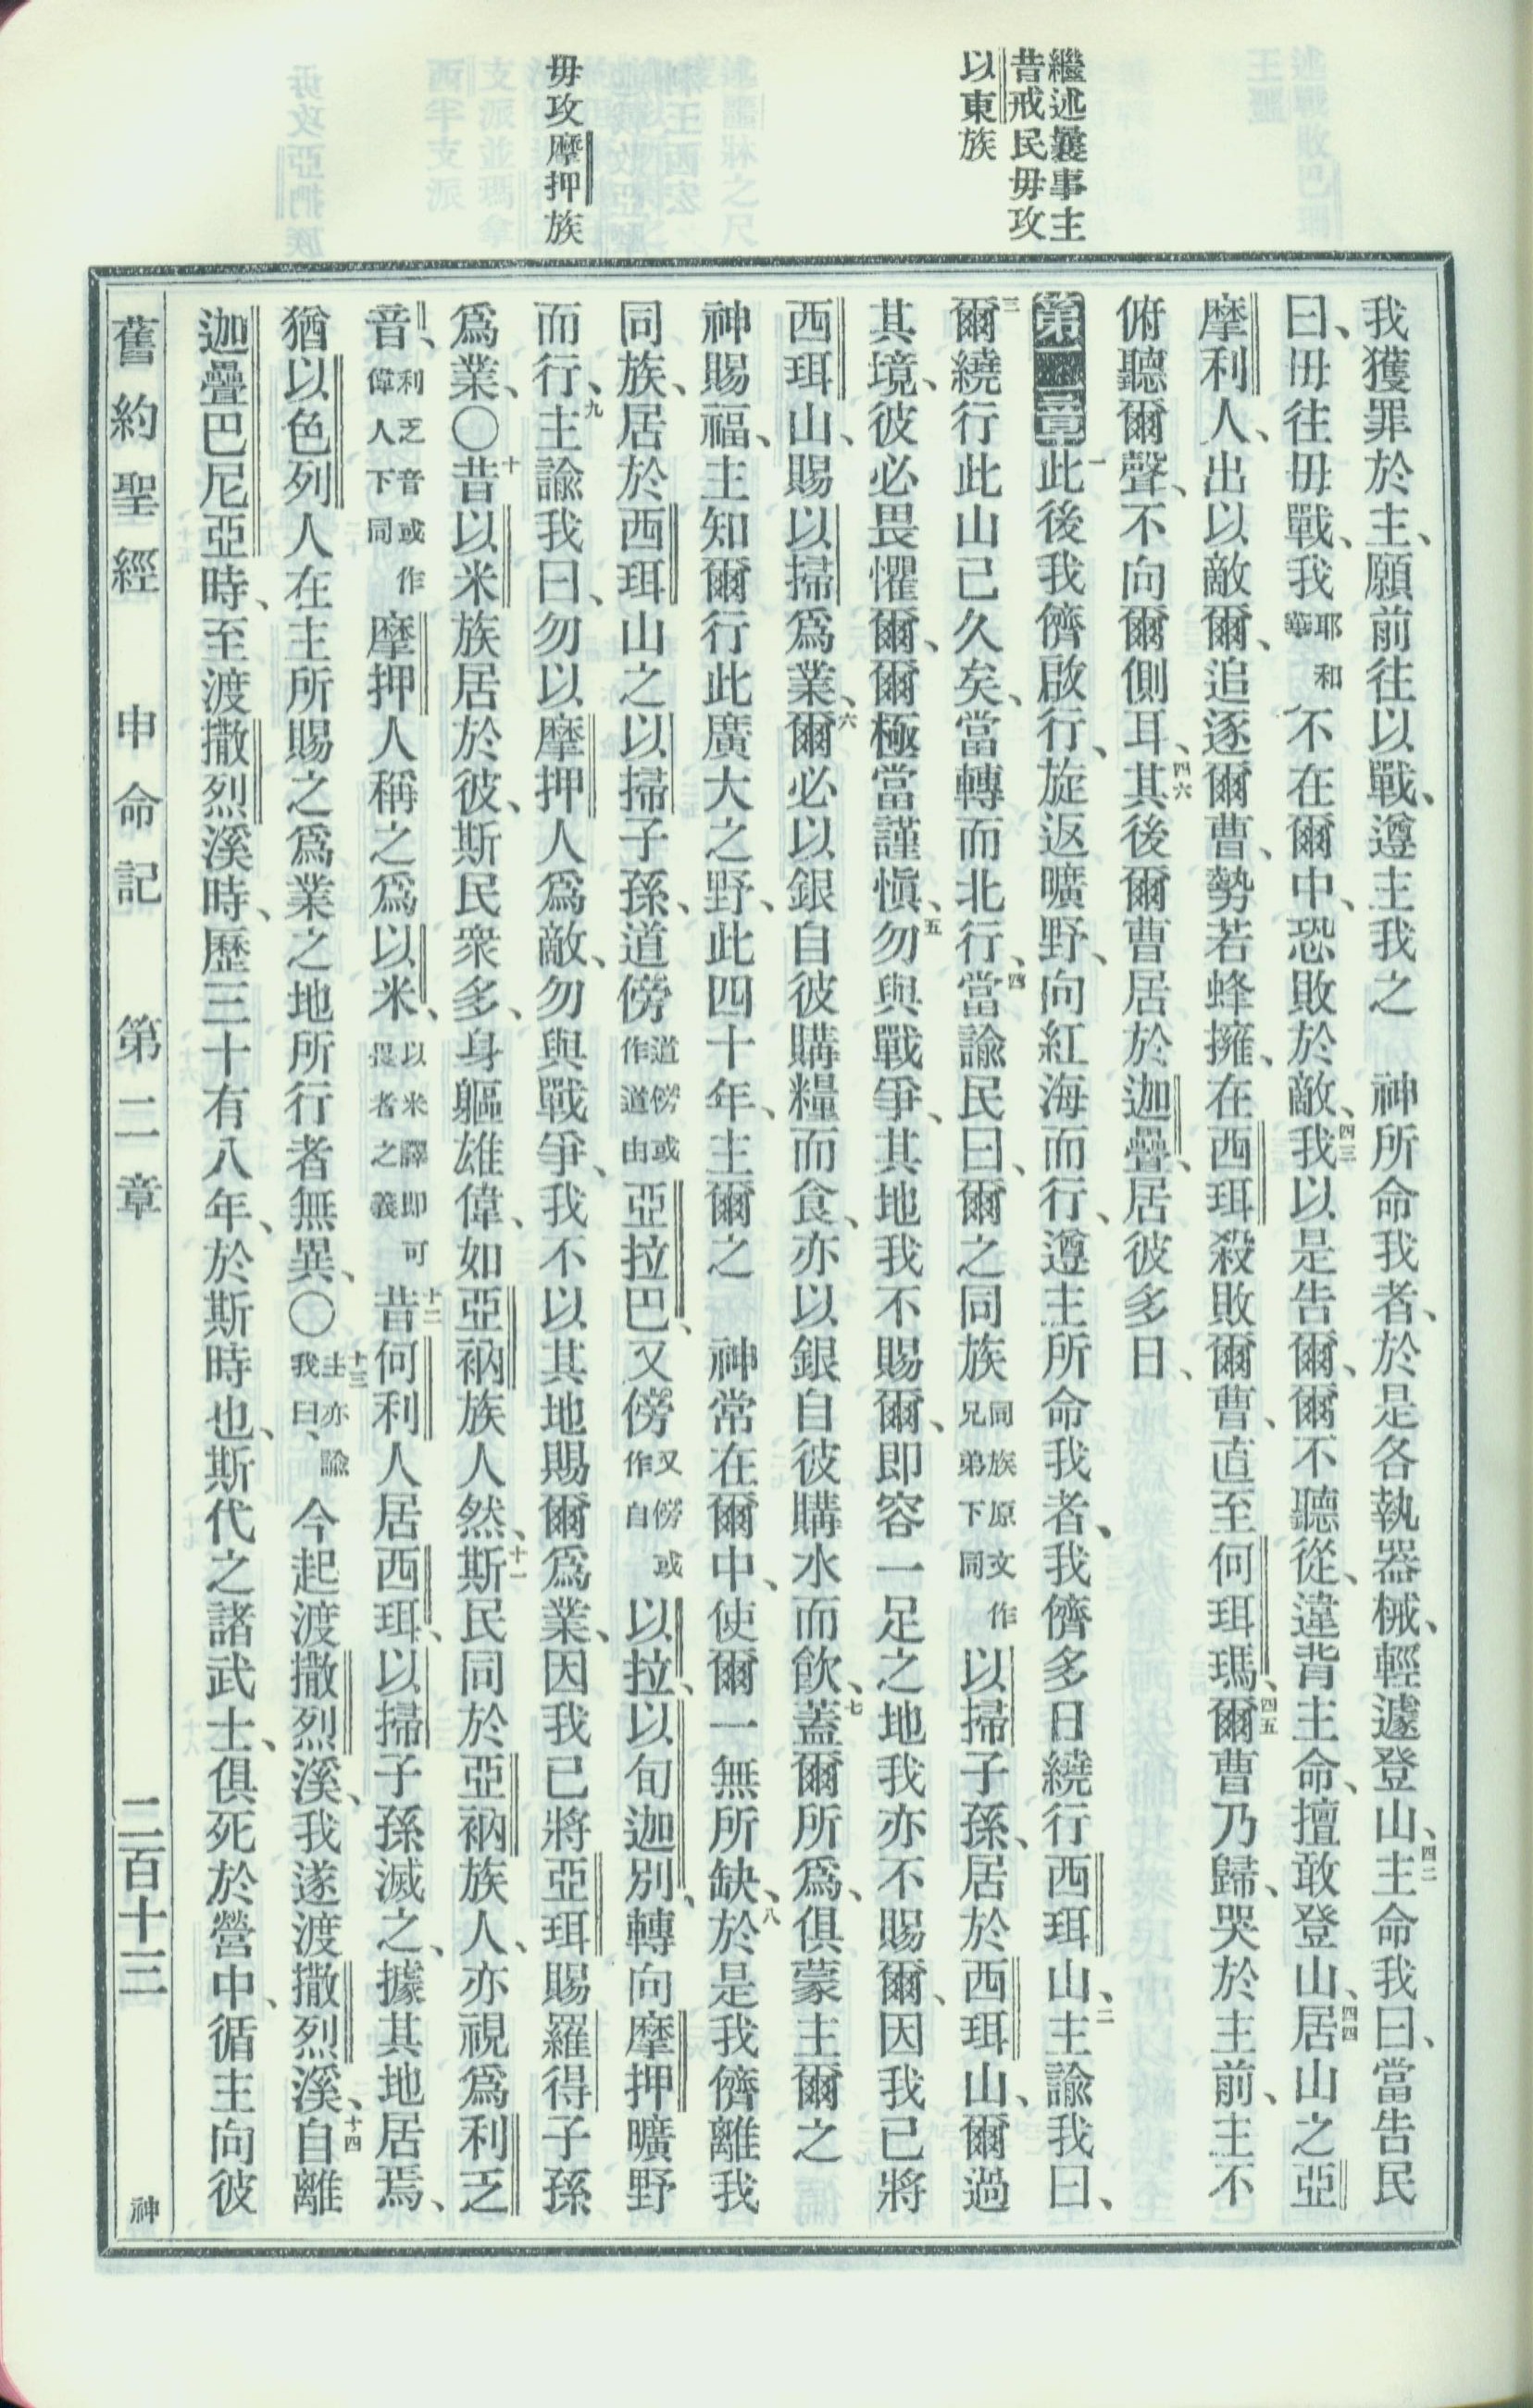 繼述曩事主
昔戒民毋攻
以東族
毋攻摩押族
我獲罪於主、願前往以戰、遵主我之　神所命我者、於是各執器械、輕遽登山、四二主命我曰、當告民
曰、毋往毋戰、我耶和華不在爾中、恐敗於敵、四三我以是告爾、爾不聽從、違背主命、擅敢登山、四四居山之亞
摩利人、出以敵爾、追逐爾曹、勢若蜂擁、在西珥殺敗爾曹、直至何珥瑪、四五爾曹乃歸、哭於主前、主不
俯聽爾聲、不向爾側耳、四六其後爾曹居於迦疊、居彼多日、
第二章一此後我儕啟行、旋返曠野、向紅海而行、遵主所命我者、我儕多日繞行西珥山、二主諭我曰、
三爾繞行此山已久矣、當轉而北行、四當諭民曰、爾之同族同族原文作兄弟下同以掃子孫、居於西珥山、爾過
其境、彼必畏懼爾、爾極當謹愼、五勿與戰爭、其地我不賜爾、卽容一足之地我亦不賜爾、因我已將
西珥山、賜以掃爲業、六爾必以銀自彼購糧而食、亦以銀自彼購水而飲、七蓋爾所爲、俱蒙主爾之
神賜福、主知爾行此廣大之野、此四十年、主爾之　神常在爾中、使爾一無所缺、八於是我儕離我
同族、居於西珥山之以掃子孫、道傍道傍或作道由亞拉巴、又傍又傍或作自以拉、以旬迦別、轉向摩押曠野
而行、九主諭我曰、勿以摩押人爲敵、勿與戰爭、我不以其地賜爾爲業、因我已將亞珥賜羅得子孫
爲業、〇十昔以米族居於彼、斯民衆多、身軀雄偉、如亞衲族人然、十一斯民同於亞衲族人、亦視爲利乏
音、利乏音或作偉人下同摩押人稱之爲以米、以米譯卽可畏者之義十二昔何利人居西珥、以掃子孫滅之、據其地居焉、
猶以色列人在主所賜之爲業之地所行者無異、〇十三主亦諭我曰、今起渡撒烈溪、我遂渡撒烈溪、十四自離
迦疊巴尼亞時、至渡撒烈溪時、歷三十有八年、於斯時也、斯代之諸武士、俱死於營中、循主向彼
舊約聖經　申命記　第二章　二百十三　神